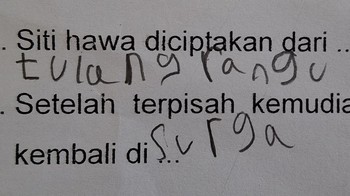 . Siti hawa diciptakan dari ..
tulang rangu
. Setelah terpisah kemudia
kembali di ... Surga